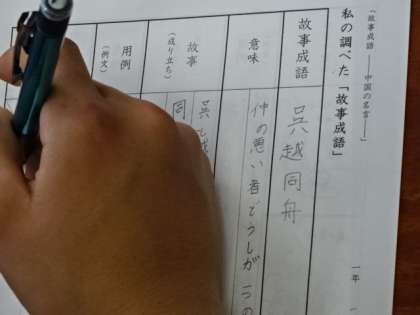 「故事成語 ――中国の名言――」
私の調べた「故事成語」
一年
故事成語
呉越同舟
意味
仲の悪い者どうしが一つの
故事
(成り立ち)
呉
同
用例
(例文)